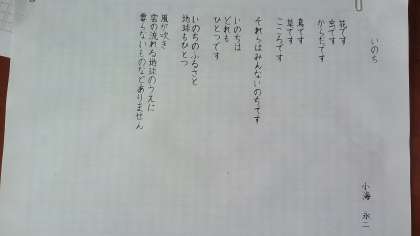 いのち
小海 永二
花です
虫です
からだです
鳥です
草です
こころです
それらはみんないのちです
いのちは
どれも
ひとつです
いのちのふるさと
地球もひとつ
風が吹き
雲の流れる地球のうえに
要らないものなどありません